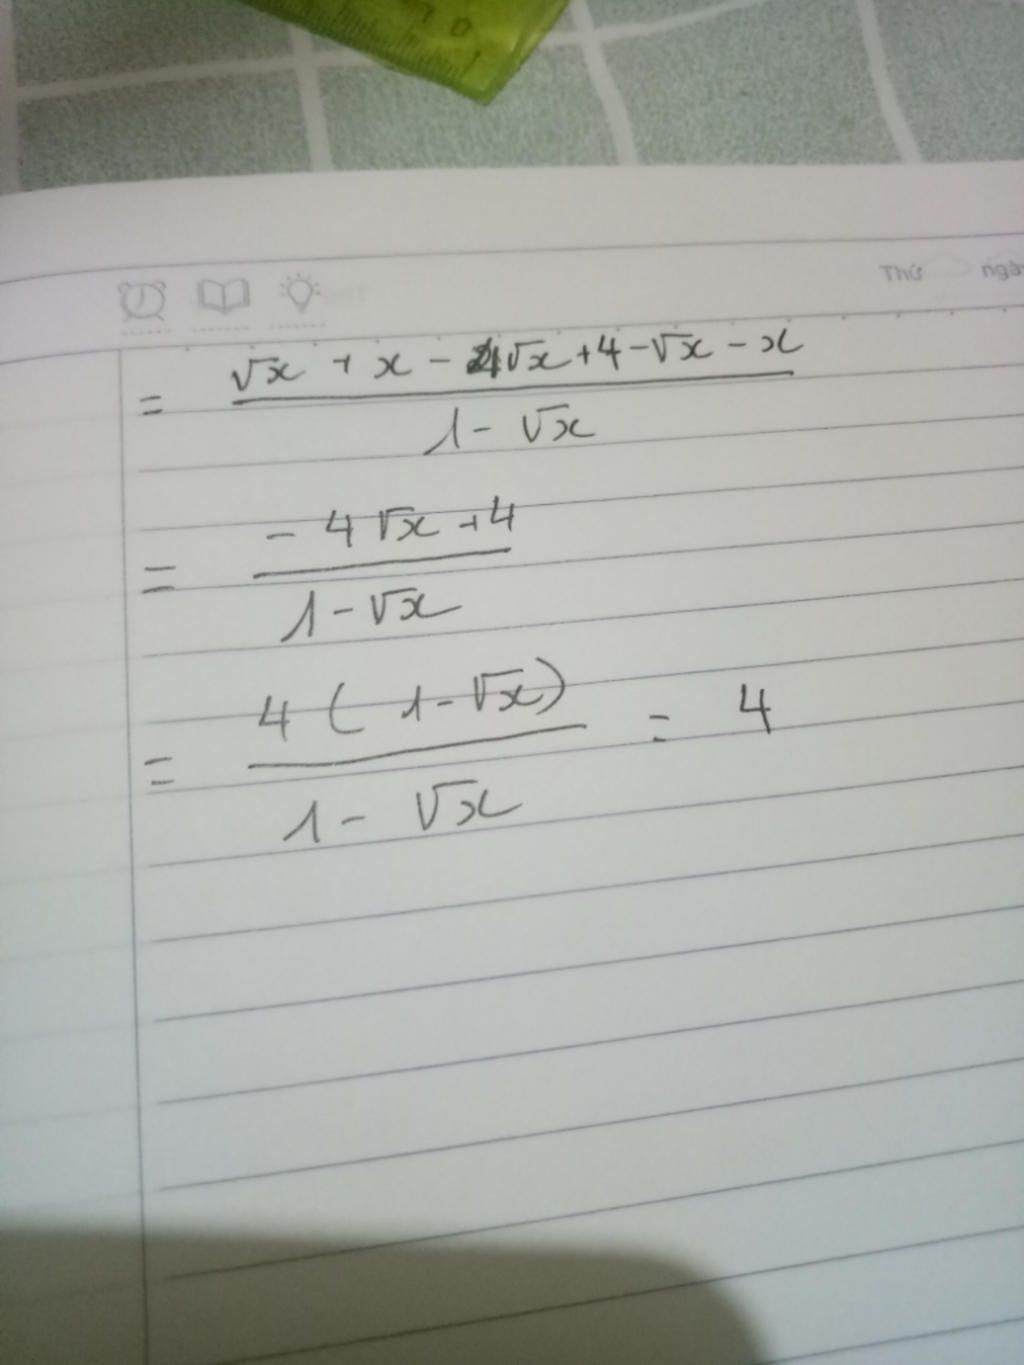 Thứ ngày
= (√x + x - 4√x + 4 - √x - x) / (1 - √x)
= (-4√x + 4) / (1 - √x)
= 4(1 - √x) / (1 - √x) = 4